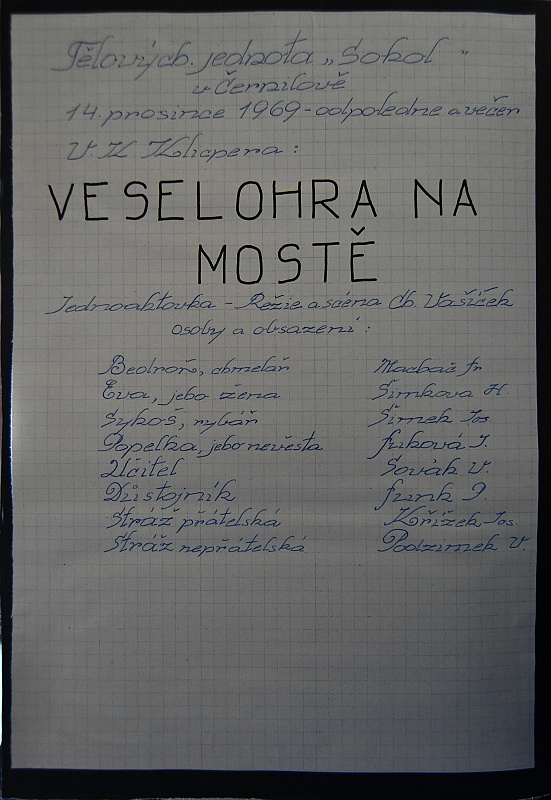 Tělovýchˑ jednota „Sokol"
v Černilově
14. prosince 1969 - odpoledne a večer
V. K. Klicpera :
VESELOHRA NA
MOSTĚ
Jednoaktovka - Režie a scéna Ob. Vašíček
osoby a obsazení :
Bedroň, chmelař Machač fr
Eva, jeho žena Šimkova H.
Sykoš, rybář Šimek Jos.
Popelka, jeho nevěsta fuková J.
Učitel Sovák V.
Důstojník funk J.
Stráž přátelská Křížek Jos.
Stráž nepřátelská Podzimek V.